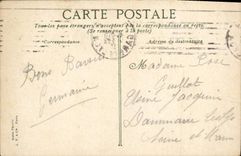 CARTE POSTALE
Tous les pays étrangers n'acceptent pas la correspondance au recto.
(Se renseigner à la poste)
Correspondance
Adresse du destinataire
Bons Baisers
Germaine
Madame
Guillot
Usine Jacquin
Dammarie les Lys
Seine et Marne